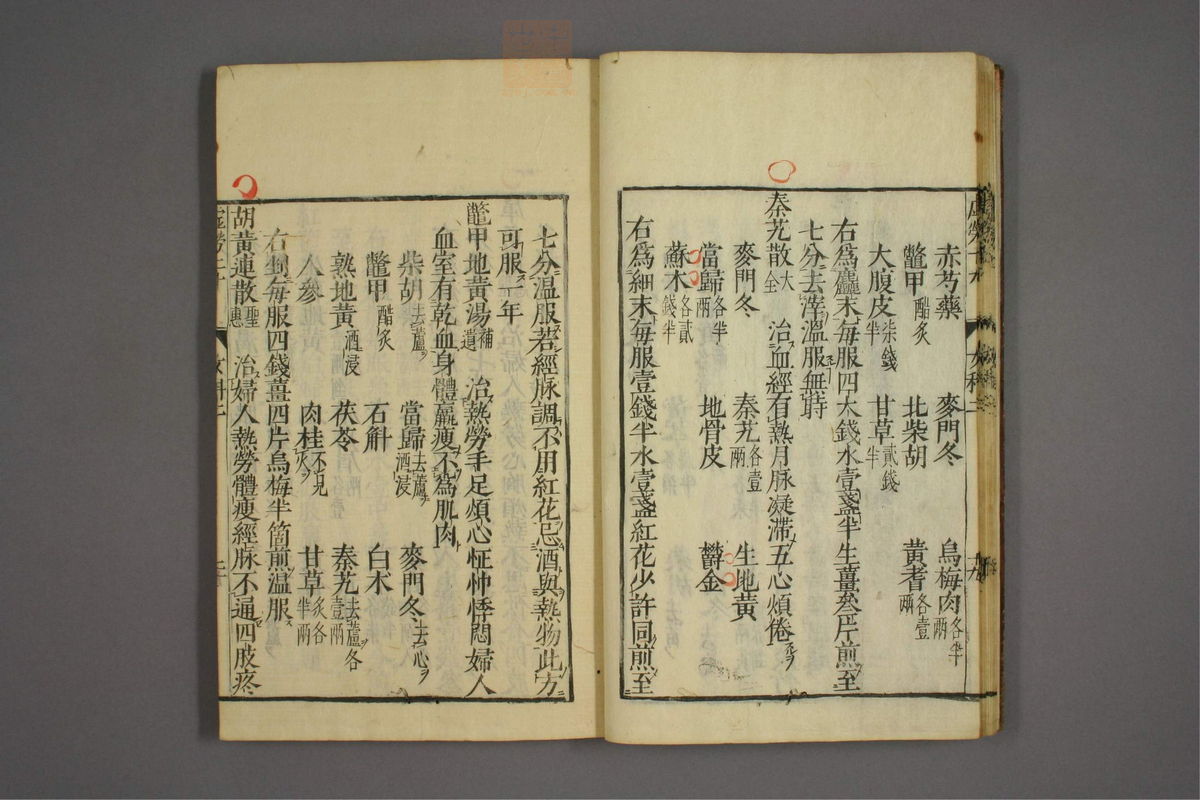 赤芍藥 麥門冬 烏梅肉各半兩
鱉甲醋炙 北柴胡 黃耆各壹兩
大腹皮柒錢半 甘草貳錢半
右爲麤末每服四大錢水壹盞半生薑叄片煎至
七分去滓溫服無時
秦艽散大全 治血經有熱月脉凝滯五心煩倦
麥門冬 秦艽各壹兩 生地黃
當歸各半兩 地骨皮 欝金
蘇木各貳錢半
右爲細末每服壹錢半水壹盞紅花少許同煎至
七分溫服若經脉調不用紅花忌酒與熱物此方
可服一年
鱉甲地黃湯補遺 治熱勞手足煩心怔忡悸悶婦人
血室有乾血身體羸瘦不爲肌肉
柴胡去蘆 當歸去蘆酒浸 麥門冬去心
鱉甲醋炙 石斛 白朮
熟地黃酒浸 茯苓 秦艽去蘆各壹兩
人參 肉桂不見火 甘草炙各半兩
右剉每服四錢薑四片烏梅半箇煎溫服
胡黃連散聖惠 治婦人熱勞體瘦經脉不通四肢疼